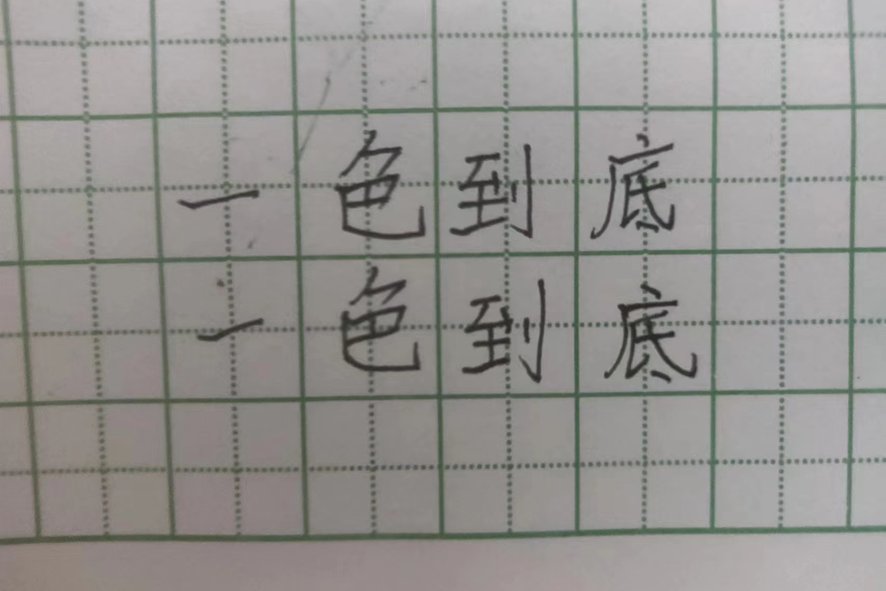 一色到底
一色到底